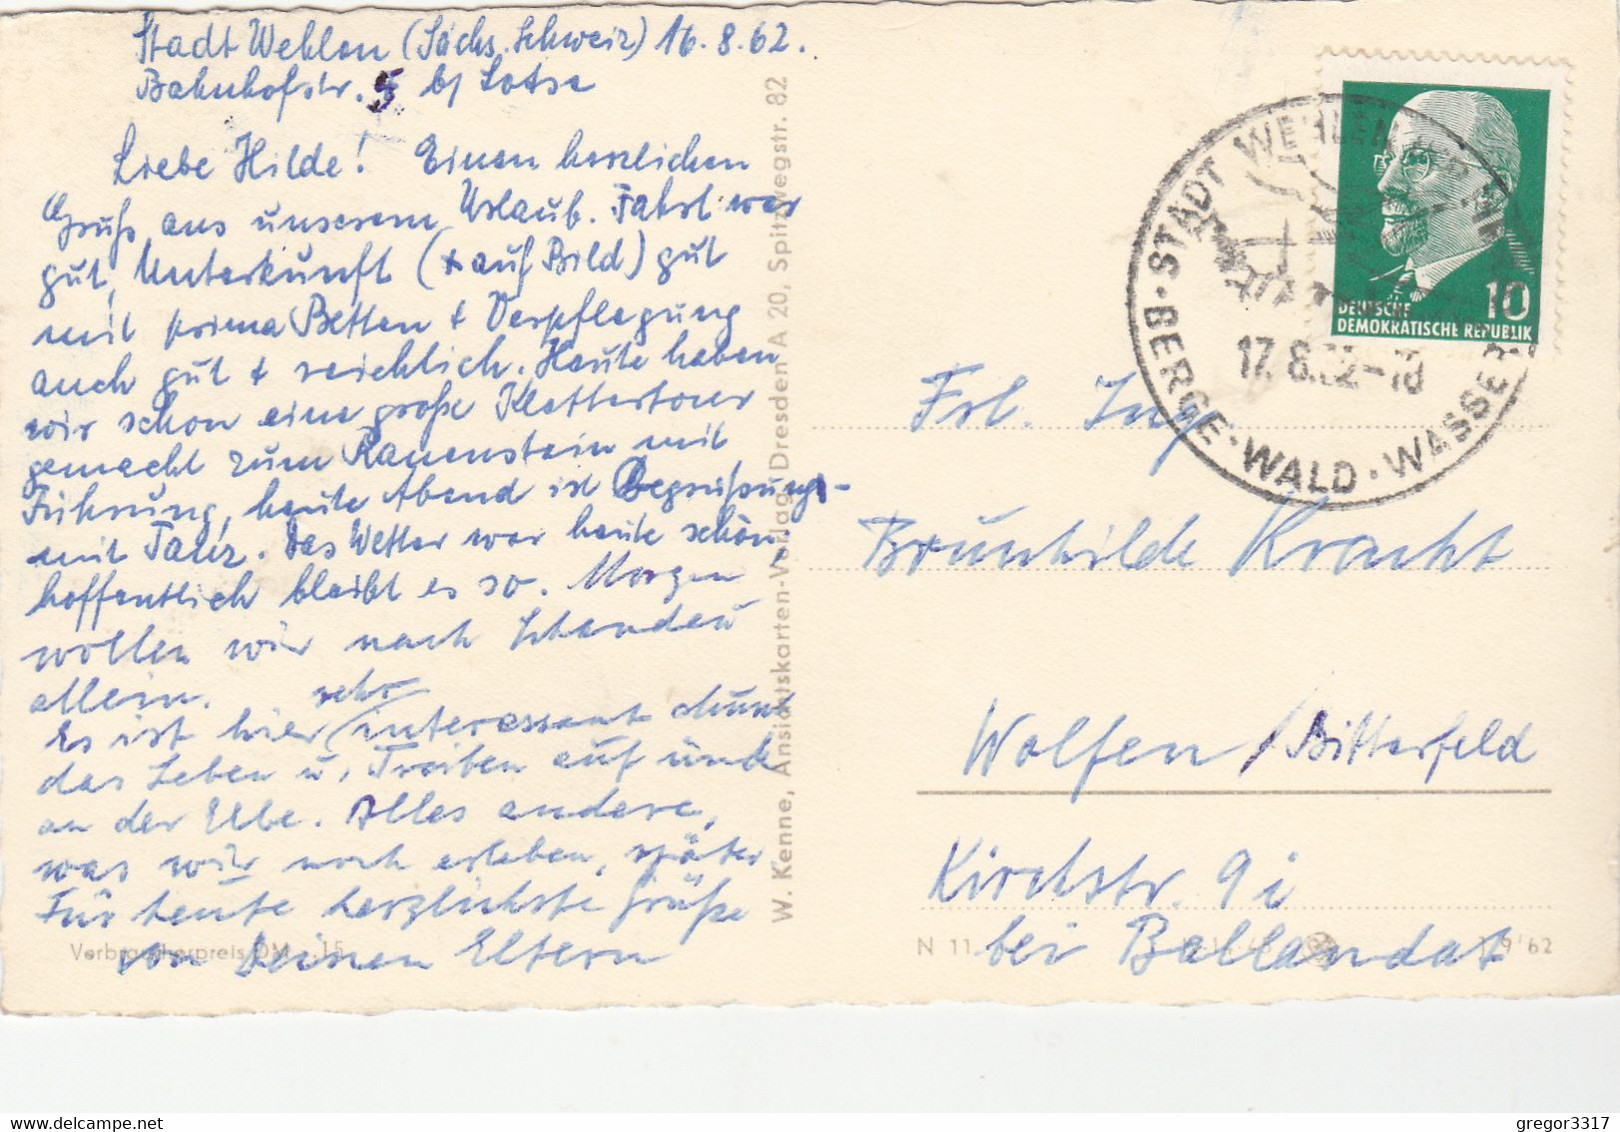 Stadt Wehlen (Sächs. Schweiz) 16.8.62.
Bahnhofstr. 5 b/ Lotse
Liebe Hilde! Einen herzlichen
Gruß aus unserem Urlaub. Fahrt war
gut, Unterkunft (x auf Bild) gut
mit prima Betten + Verpflegung
auch gut + reichlich. Heute haben
wir schon eine große Klettertour
gemacht zum Rauenstein mit
Führung, heute Abend ist Begrüßung
mit Tanz. Das Wetter war heute schön,
hoffentlich bleibt es so. Morgen
wollen wir nach Schandau
allein.
Es ist hier sehr interessant
das Leben u. Treiben auf und
an der Elbe. Alles andere,
was wir noch erleben, später
Für heute herzlichste Grüße
von Deinen Eltern
Verbraucherpreis DM -.15
W. Kenne, Ansichtskarten-Verlag, Dresden A 20, Spitzwegstr. 82
DEUTSCHE
DEMOKRATISCHE REPUBLIK
10
STADT WEHLEN
BERGE · WALD · WASSER
17.8.62-18
Frl. Inge
Brunhilde Kracht
Wolfen / Bitterfeld
Kirchstr. 9i
bei Ballandat
N 11
9/62
gregor3317